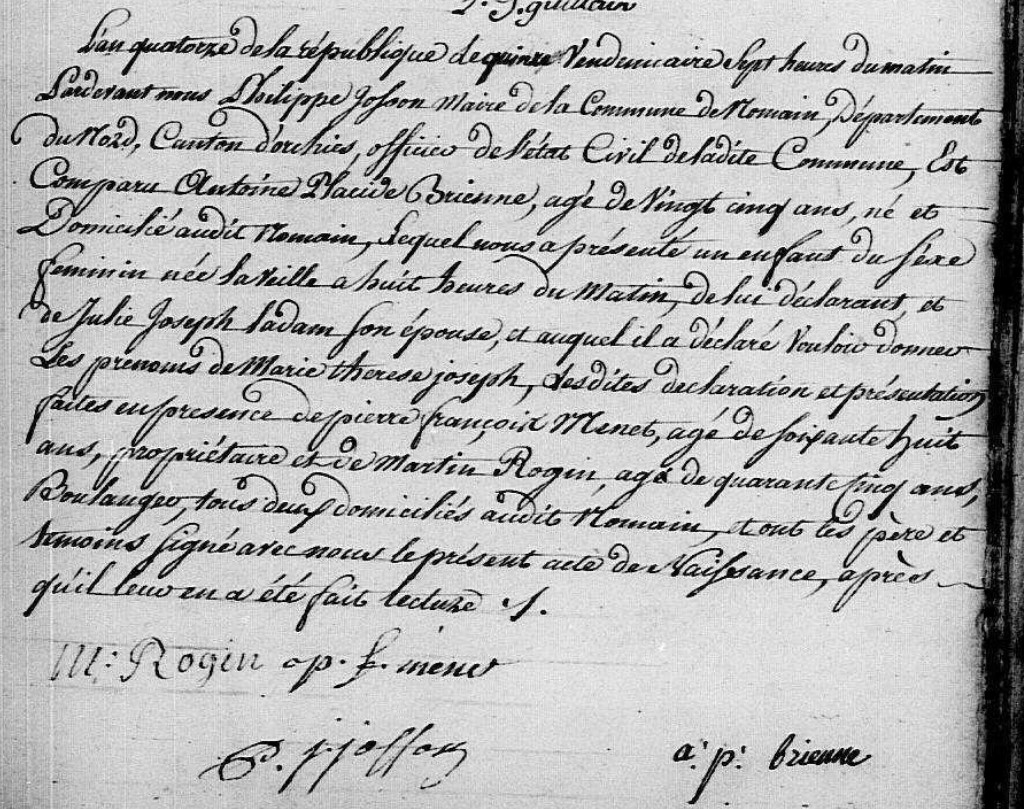 L'an quatorze de la république le quinze Vendemiaire Sept heures du matin
Pardevant nous Philippe Josson Maire de la Commune de Nomain, Département
du Nord, Canton d'orchies, officier de l'état Civil de ladite Commune, Est
Comparu Antoine Placide Brienne, agé de Vingt cinq ans, né et
Domicilié audit Nomain, Lequel nous a présenté un enfant du séxe
feminin née la veille a huit heures du Matin, de lui déclarant, et
de Julie Joseph ladam son épouse, et auquel il a déclaré Vouloir donner
Les prenoms de Marie therese joseph, Lesdites declaration et présentation
faites en presence de pierre françoix Menet, agé de soixante huit
ans, propriétaire et de Martin Rogin, agé de quarante cinq ans,
Boulanger, tous deux domiciliés audit Nomain, et ont les père et
temoins signé avec nous le présent acte de Naissance, après
qu'il leur en a été fait lecture ./.
M: Rogin p. f. menet
P. j josson
a: p: brienne